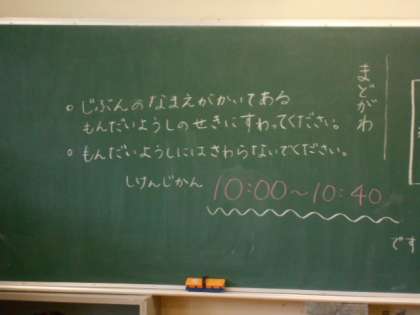 ○ じぶんのなまえがかいてある
もんだいようしのせきにすわってください。
○ もんだいようしにはさわらないでください。
しけんじかん 10:00～10:40
まどがわ
です